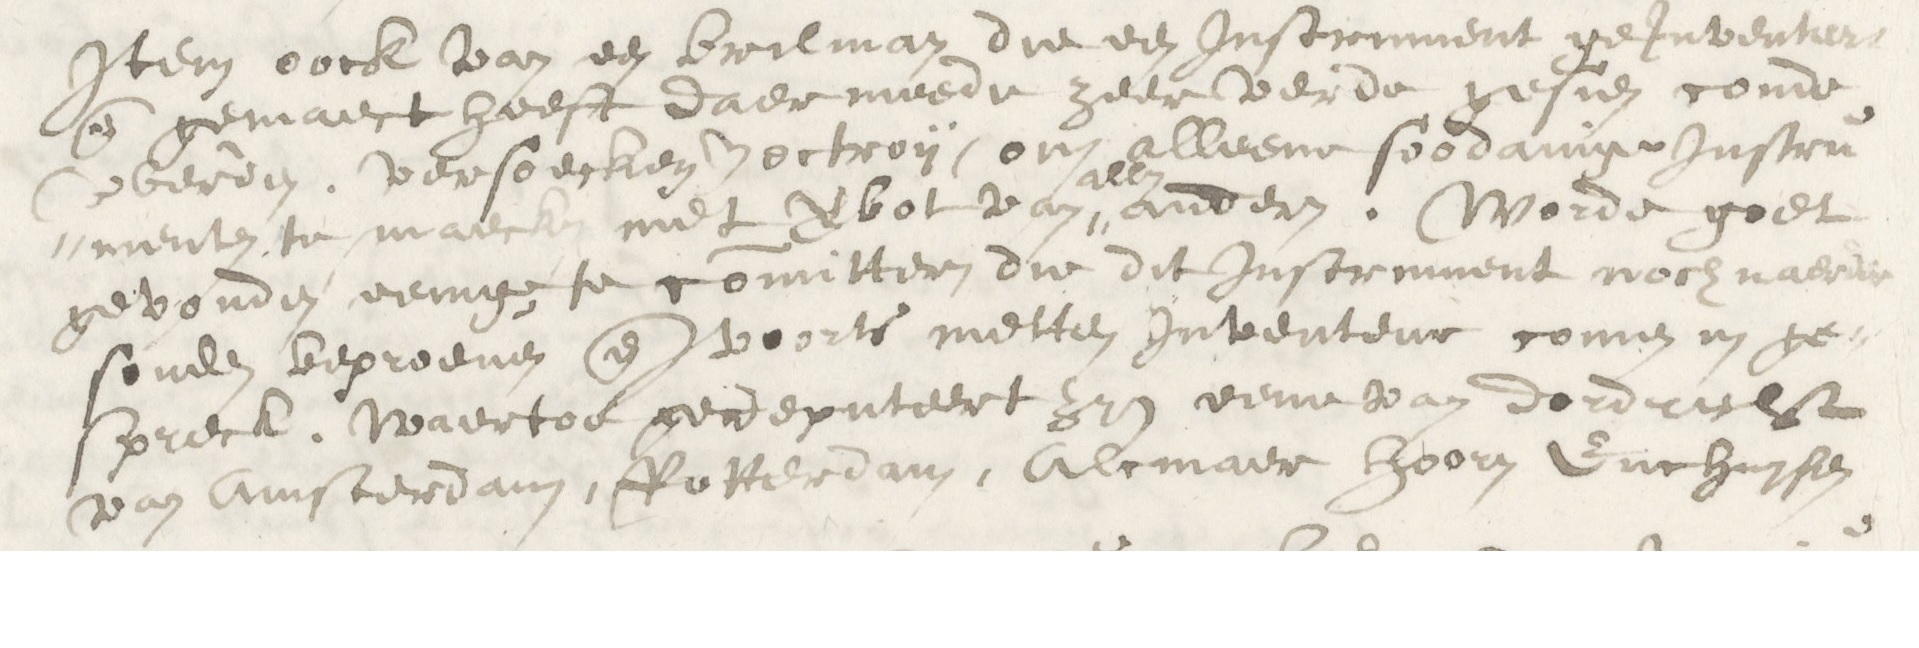 Item oock van een brilman die een Instrument geInventeer
en gemaect heeft daermeede zeer verde gesien conde
werden. versoecken octroij, om alleene soodanige Instru
"menten te maecken met verbot van allen anderen. Worde goet
gevonden eenige te committeren die dit Instrument noch naerder
souden beproeven en voorts metten Inventeur comen in ge"
spreck. Waertoe gedeputeert zijn eene van dordrecht
van Amsterdam, Rotterdam, Alcmaer hoorn Enchuysen